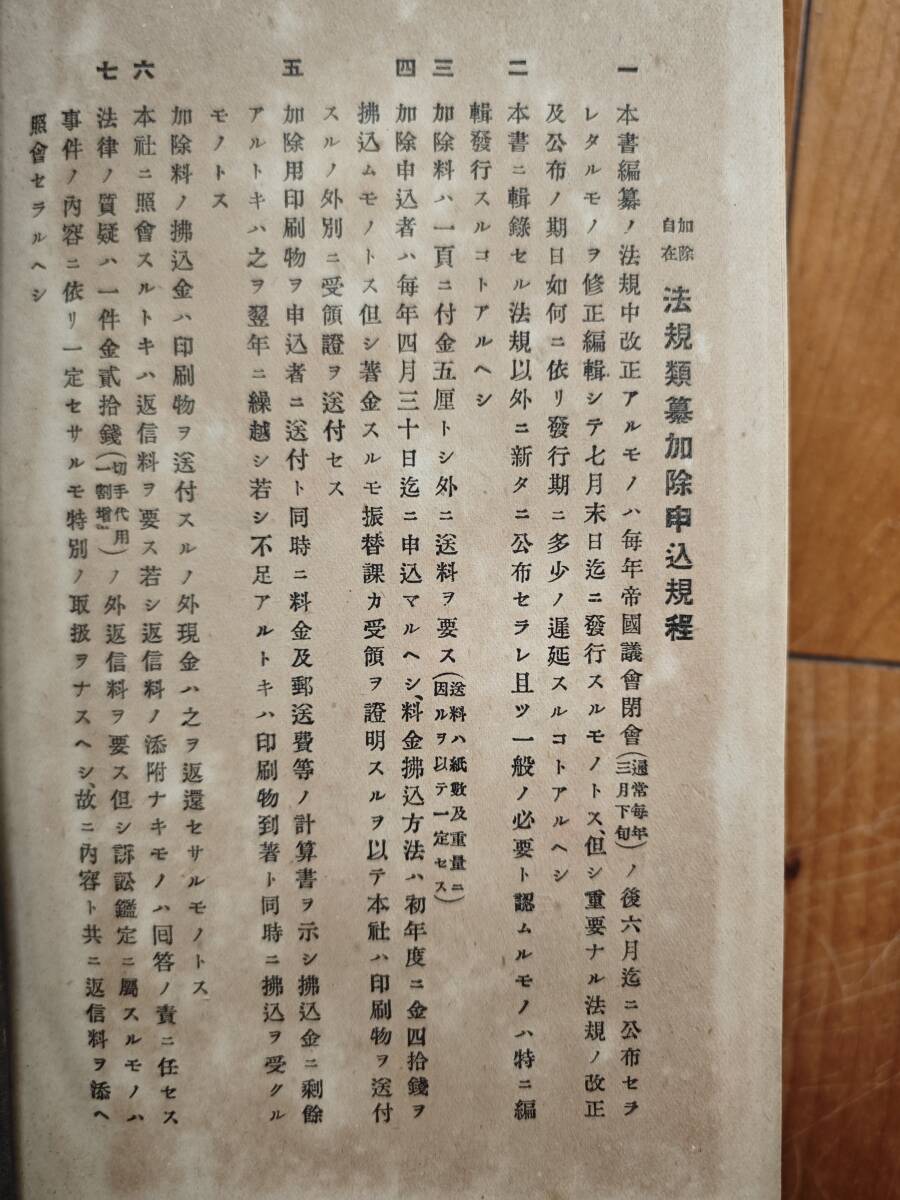 加除自在 法規類纂加除申込規程
一 本書編纂ノ法規中改正アルモノハ每年帝國議會閉會(通常每年三月下旬)ノ後六月迄ニ公布セラ
レタルモノヲ修正編輯シテ七月末日迄ニ發行スルモノトス、但シ重要ナル法規ノ改正
及公布ノ期日如何ニ依リ發行期ニ多少ノ遲延スルコトアルヘシ
二 本書ニ輯錄セル法規以外ニ新タニ公布セラレ且ツ一般ノ必要ト認ムルモノハ特ニ編
輯發行スルコトアルヘシ
三 加除料ハ一頁ニ付金五厘トシ外ニ送料ヲ要ス(送料ハ紙數及重量ニ因ルヲ以テ一定セス)
四 加除申込者ハ每年四月三十日迄ニ申込マルヘシ、料金拂込方法ハ初年度ニ金四拾錢ヲ
拂込ムモノトス但シ著金スルモ振替課カ受領ヲ證明スルヲ以テ本社ハ印刷物ヲ送付
スルノ外別ニ受領證ヲ送付セス
五 加除用印刷物ヲ申込者ニ送付ト同時ニ料金及郵送費等ノ計算書ヲ示シ拂込金ニ剩餘
アルトキハ之ヲ翌年ニ繰越シ若シ不足アルトキハ印刷物到著ト同時ニ拂込ヲ受クル
モノトス
加除料ノ拂込金ハ印刷物ヲ送付スルノ外現金ハ之ヲ返還セサルモノトス
六 本社ニ照會スルトキハ返信料ヲ要ス若シ返信料ノ添附ナキモノハ回答ノ責ニ任セス
七 法律ノ質疑ハ一件金貳拾錢(切手代用一割增)ノ外返信料ヲ要ス但シ訴訟鑑定ニ屬スルモノハ
事件ノ內容ニ依リ一定セサルモ特別ノ取扱ヲナスヘシ、故ニ內容ト共ニ返信料ヲ添ヘ
照會セラルヘシ